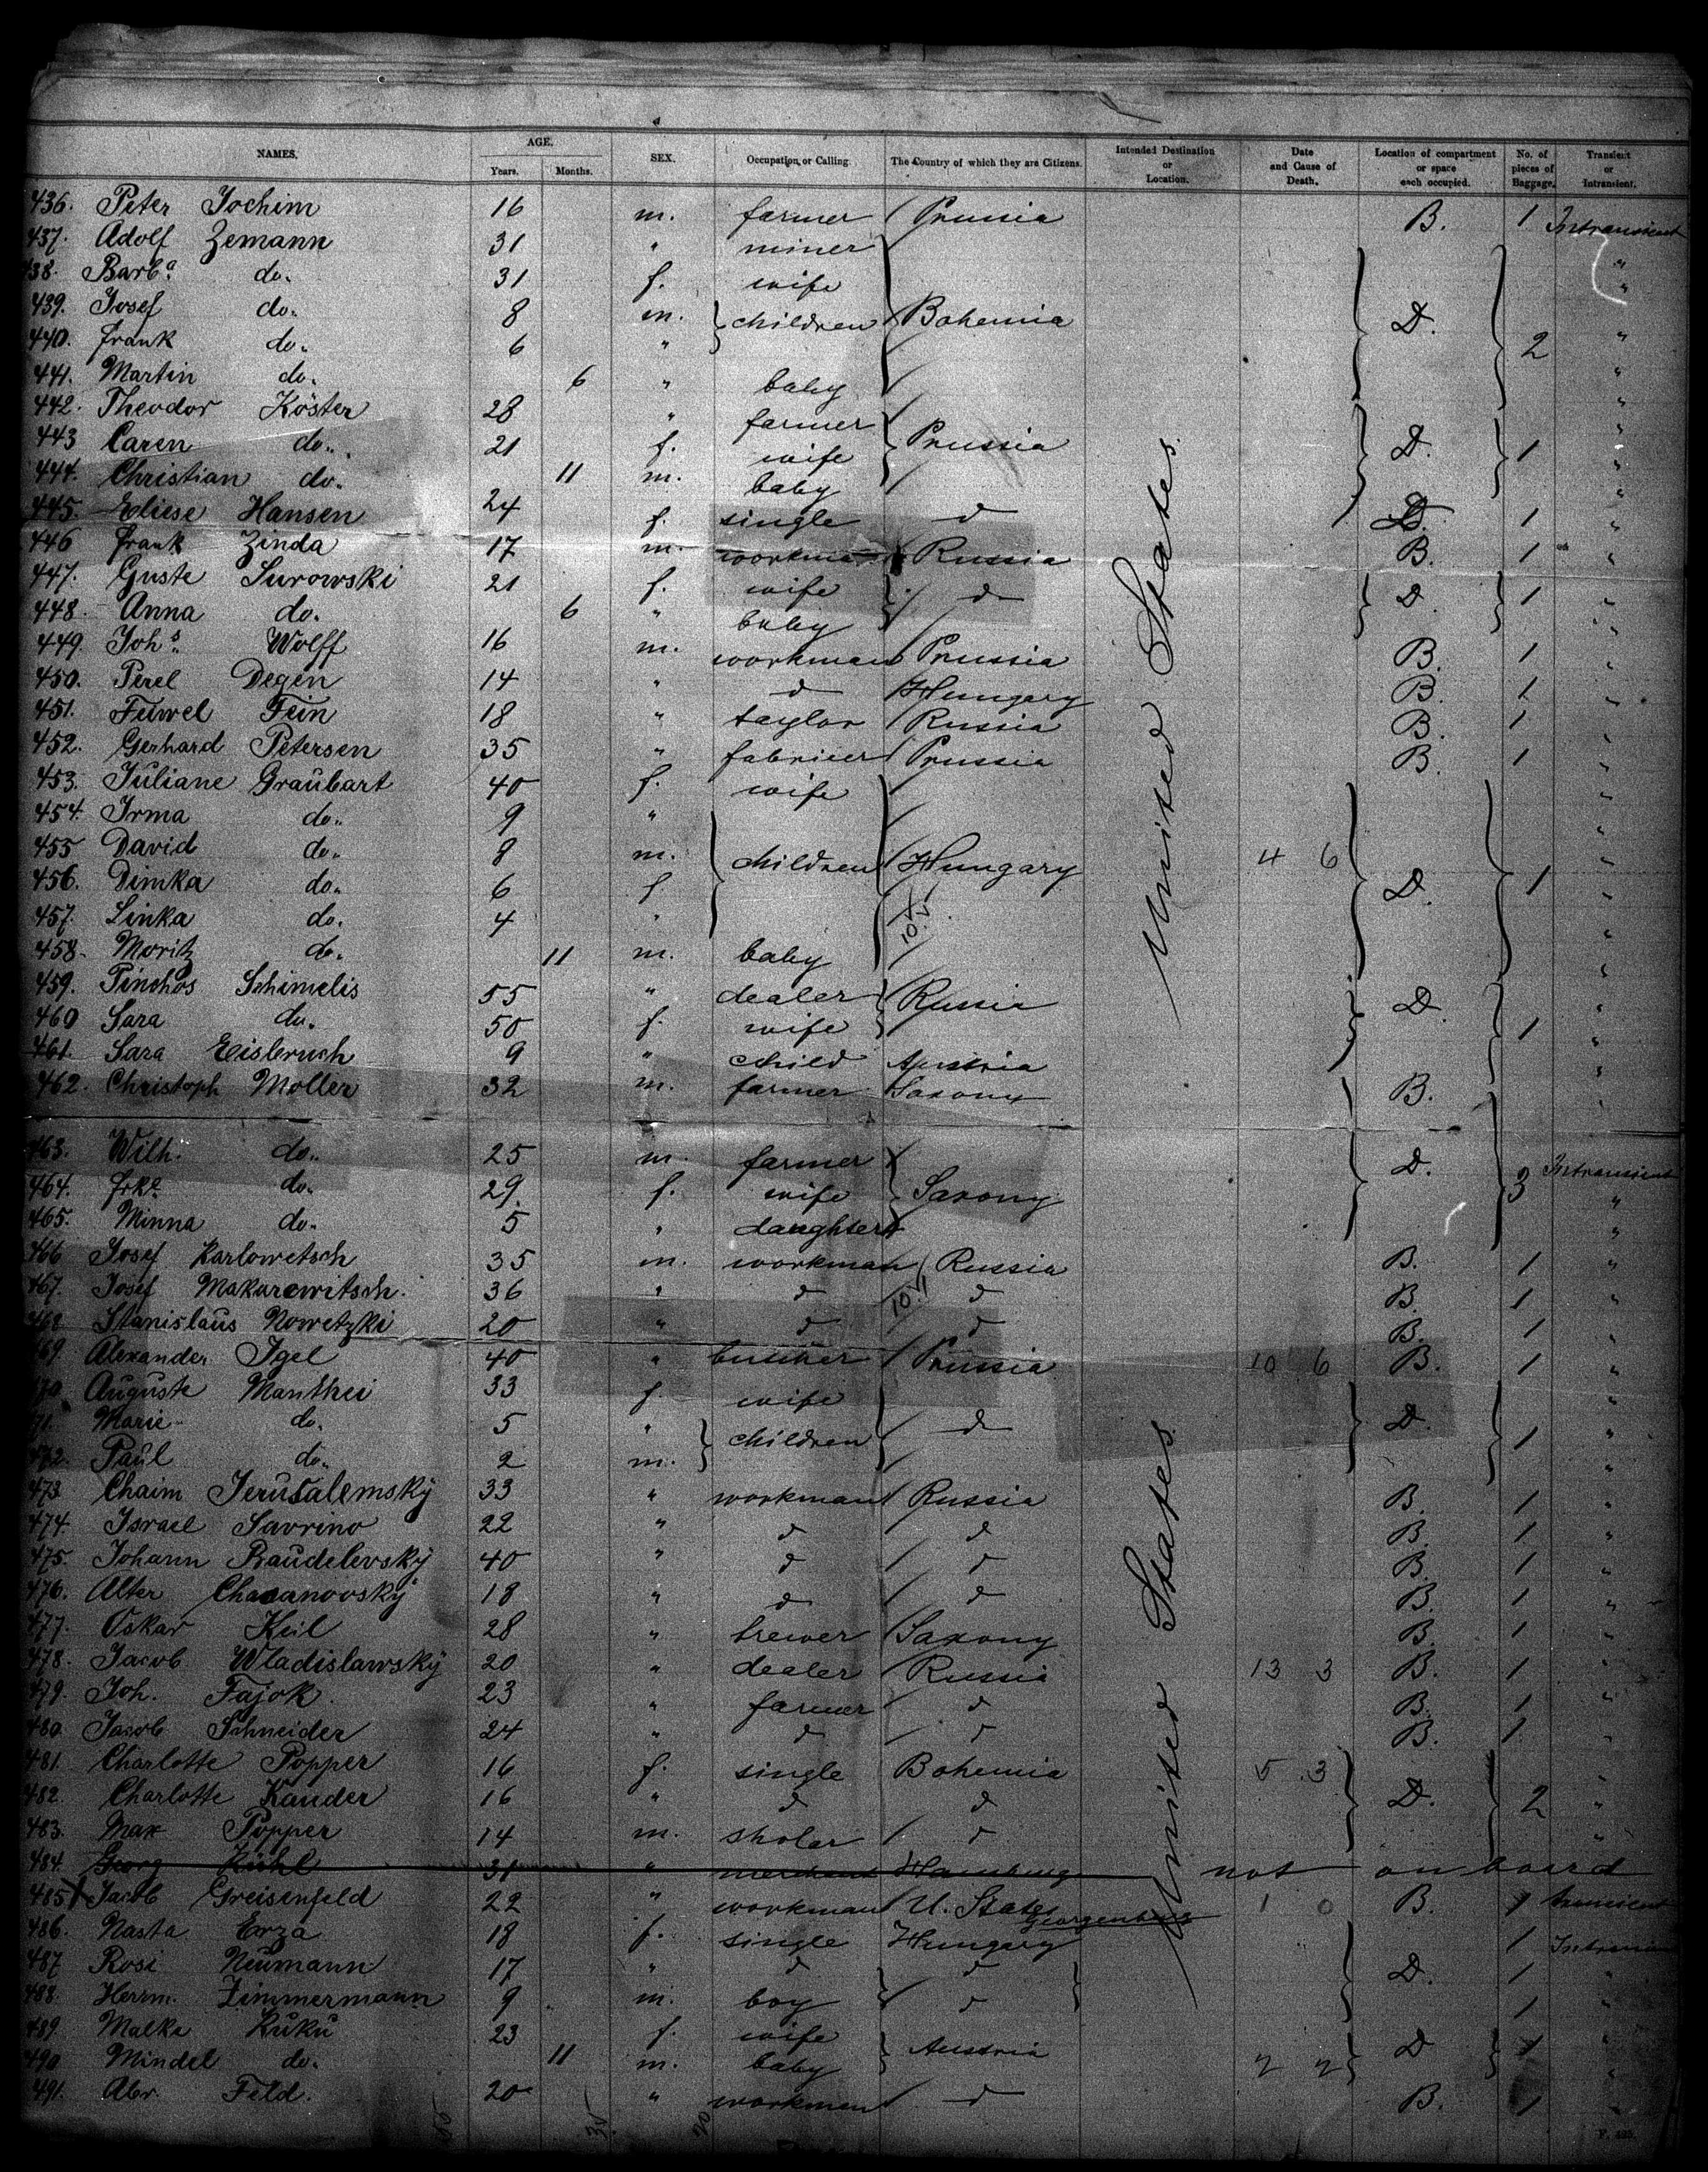 NAMES. AGE. Years. Months. SEX. Occupation or Calling. The Country of which they are Citizens. Intended Destination or Location. Date and Cause of Death. Location of compartment or space each occupied. No. of pieces of Baggage. Transient or Intransient.
436. Peter Jochim 16 m. farmer / Prussia B. 1 Intransient
437. Adolf Zemann 31 " miner "
438. Barba. do. 31 f. wife "
439. Josef do. 8 m. children Bohemia D. "
440. Frank do. 6 " 2 "
441. Martin do. 6 " baby "
442. Theodor Köster 28 " farmer "
443 Caren do. 21 f. wife Prussia D. 1 "
444. Christian do. 11 m. baby "
445. Eliese Hansen 24 f. single d D. 1 "
446 Frank Zinda 17 m. workman / Russia B. 1 "
447. Guste Surowski 21 f. wife / d D. 1 "
448. Anna do. 6 " baby "
449. Johs. Wolff 16 m. workman / Prussia B. 1 "
450. Perel Degen 14 " d / Hungary B. 1 "
451. Feiwel Fein 18 " taylor / Russia B. 1 "
452. Gerhard Petersen 35 " fabricer / Prussia B. 1 "
453. Juliane Graubart 40 f. wife /
454. Irma do. 9 " "
455 David do. 8 m. children Hungary 4 6 "
456. Dimka do. 6 f D. 1 "
457. Linka do. 4 " "
458. Moritz do. 11 m. baby / "
459. Pinchos Schimelis 55 " dealer Russia D. "
460 Sara do. 50 f. wife 1 "
461. Sara Eisbruch 9 " child Austria "
462. Christoph Moller 32 m. farmer Saxony B. "
United States
463. Wilh. do. 25 m. farmer D. Intransient
464. Frke do. 29 f. wife Saxony 3 "
465. Minna do. 5 " daughter "
466 Josef Karlowetsch 35 m. workman / Russia B. 1 "
467. Josef Makarewitsch. 36 " d d B. 1 "
468 Stanislaus Nowetzki 20 " d d B. 1 "
469. Alexander Igel 40 " butcher / Prussia 10 6 B. 1 "
470. Auguste Manthei 33 f. wife "
471. Marie do. 5 " children / d D. 1 "
472. Paul do. 2 m. "
473. Chaim Jerusalemsky 33 " workman / Russia B. 1 "
474. Israel Savrino 22 " d d B. 1 "
475. Johann Baudelevsky 40 " d / d B. 1 "
476. Alter Chasanovsky 18 " d / d B. 1 "
477. Oskar Keil 28 " brewer Saxony B. 1 "
478. Jacob Wladislawsky 20 " dealer Russia 13 3 B. 1 "
479. Joh. Fajok. 23 " farmer d B. 1 "
480. Jacob Schneider 24 " d / d B. 1 "
481. Charlotte Popper 16 f. single Bohemia 5 3 "
482. Charlotte Kauder 16 " d d D. 2 "
483. Max Popper 14 m. sholar / d "
484. Georg Kühl 31 " merchant Hamburg not on board
485 Jacob Greisenfeld 22 " workman U. States 1 0 B. 1 Transient
486. Nasta Erza 18 f. single Hungary 1
487 Rosi Neumann 17 " d d D. 1 "
488. Herrm. Zimmermann 9 m. boy d 1 "
489. Malke Kuku 23 f. wife Austria D 1 "
490 Mindel do. 11 m. baby 2 2 "
491. Abr. Feld. 20 " workman / d B. 1 "
United States